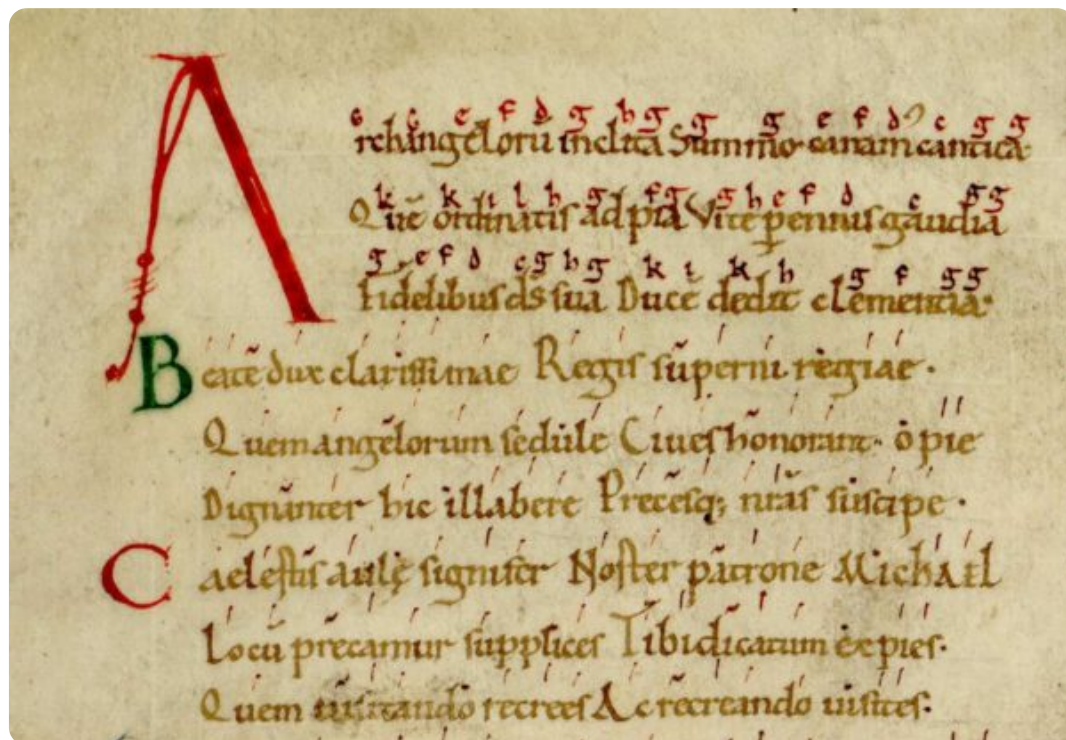 e e e f d g h g g g e f d c g g
Archangelorū inclita Summo canam cantica
k k i l h g f g g h e f d e g g
Quē ordinatis ad pia Vite pennis gaudia
g e f d e g h g k i k h g f g g
Fidelibus ds̄ sua Ducē dedit clementia·
Beate dux clarissimae Regis superni regiae·
Quem angelorum sedule Ciues honorant· o pie
Dignanter hic illabere Precesq; nr̄as suscipe·
Caelestis aulę signifer Noster patrone Michael
Locū precamur supplices Tibi dicatum expies·
Quem uisitando recrees Ac recreando uisites·